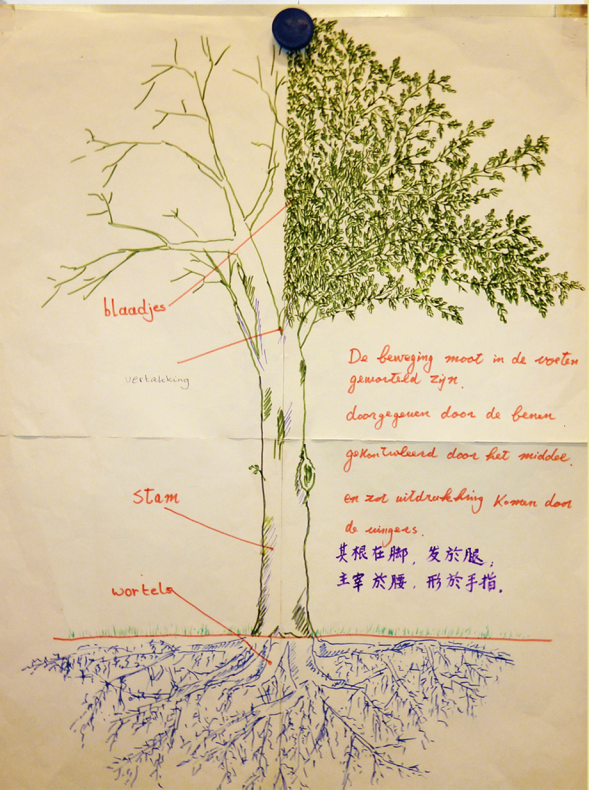 blaadjes
vertakking
stam
wortels
De beweging moet in de voeten
geworteld zijn.
doorgegeven door de benen
gekontroleerd door het middel.
en tot uitdrukking komen door
de vingers.
其根在脚，发於腿，
主宰於腰，形於手指。